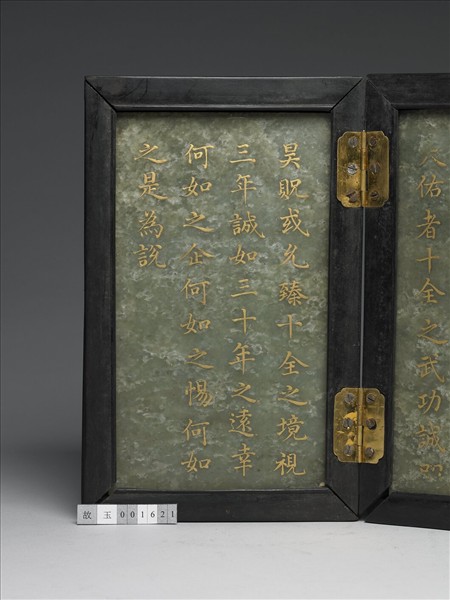 天佑者十全之武功誠叨
昊貺或允臻十全之境視
三年誠如三十年之遠幸
何如之企何如之惕何如
之是為說
故玉001621